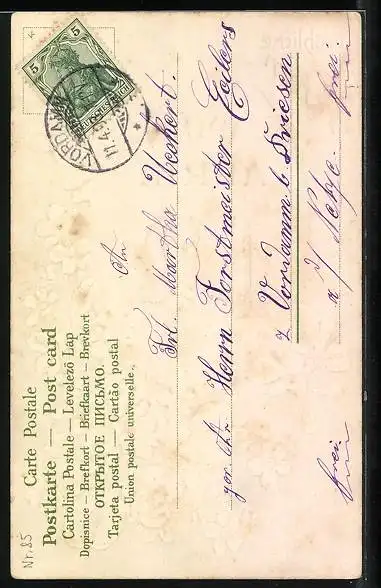 Carte Postale
Postkarte — Post card
Cartolina Postale — Levelező Lap
Dopisnice — Brefkort — Briefkaart — Brevkort
ОТКРЫТОЕ ПИСЬМО.
Tarjeta postal — Cartão postal
Union postale universelle.
5 5
DEUTSCHES REICH
VORDAMM
11.4.
An
Frl. Martha Neckert.
Herrn Forstmeister Eilers
z Vordamm b. Driesen
a/ Netze.
frei
frei
Nr. 85